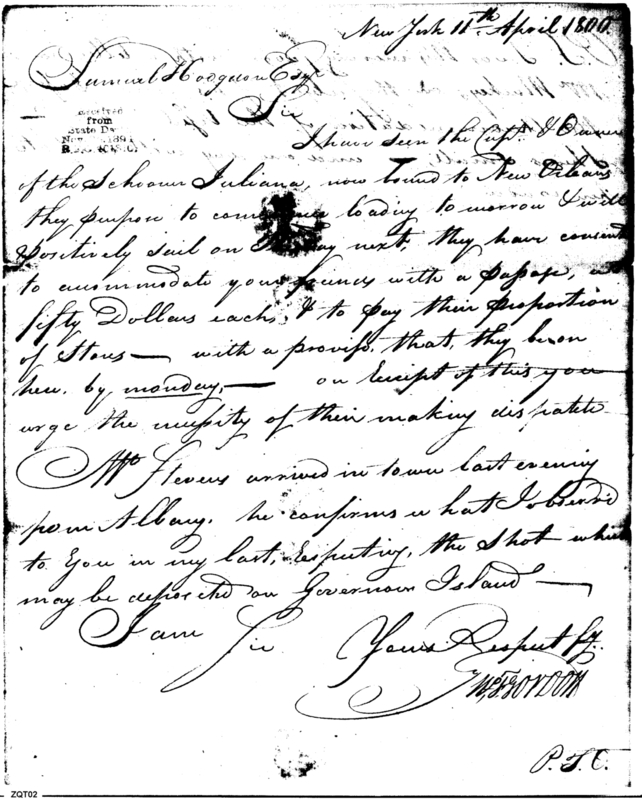 New York 11th April 1800.
Samuel Hodgdon Esqr
Sir
received
from
State De
Nov 1894
I have seen the Capt. & Owner
of the Schooner Juliana, now bound to New Orleans
they purpose to commence loading to morrow & will
positively sail on next, they have consent
to accommodate your friends with a passage, a
fifty Dollars each, & to pay their proportion
of Stores — with a proviso, that, they be on
here by monday, — on Receipt of this you
urge the necessity of their making dispatch
Mr. Stevens arrived in town last evening
from Albany. he confirms what I observ'd
to You in my last, respecting, the Shot which
may be deposited on Governors Island —
I am Sir Yours Respectfy.
GORDON
P.T.O.
ZQT02